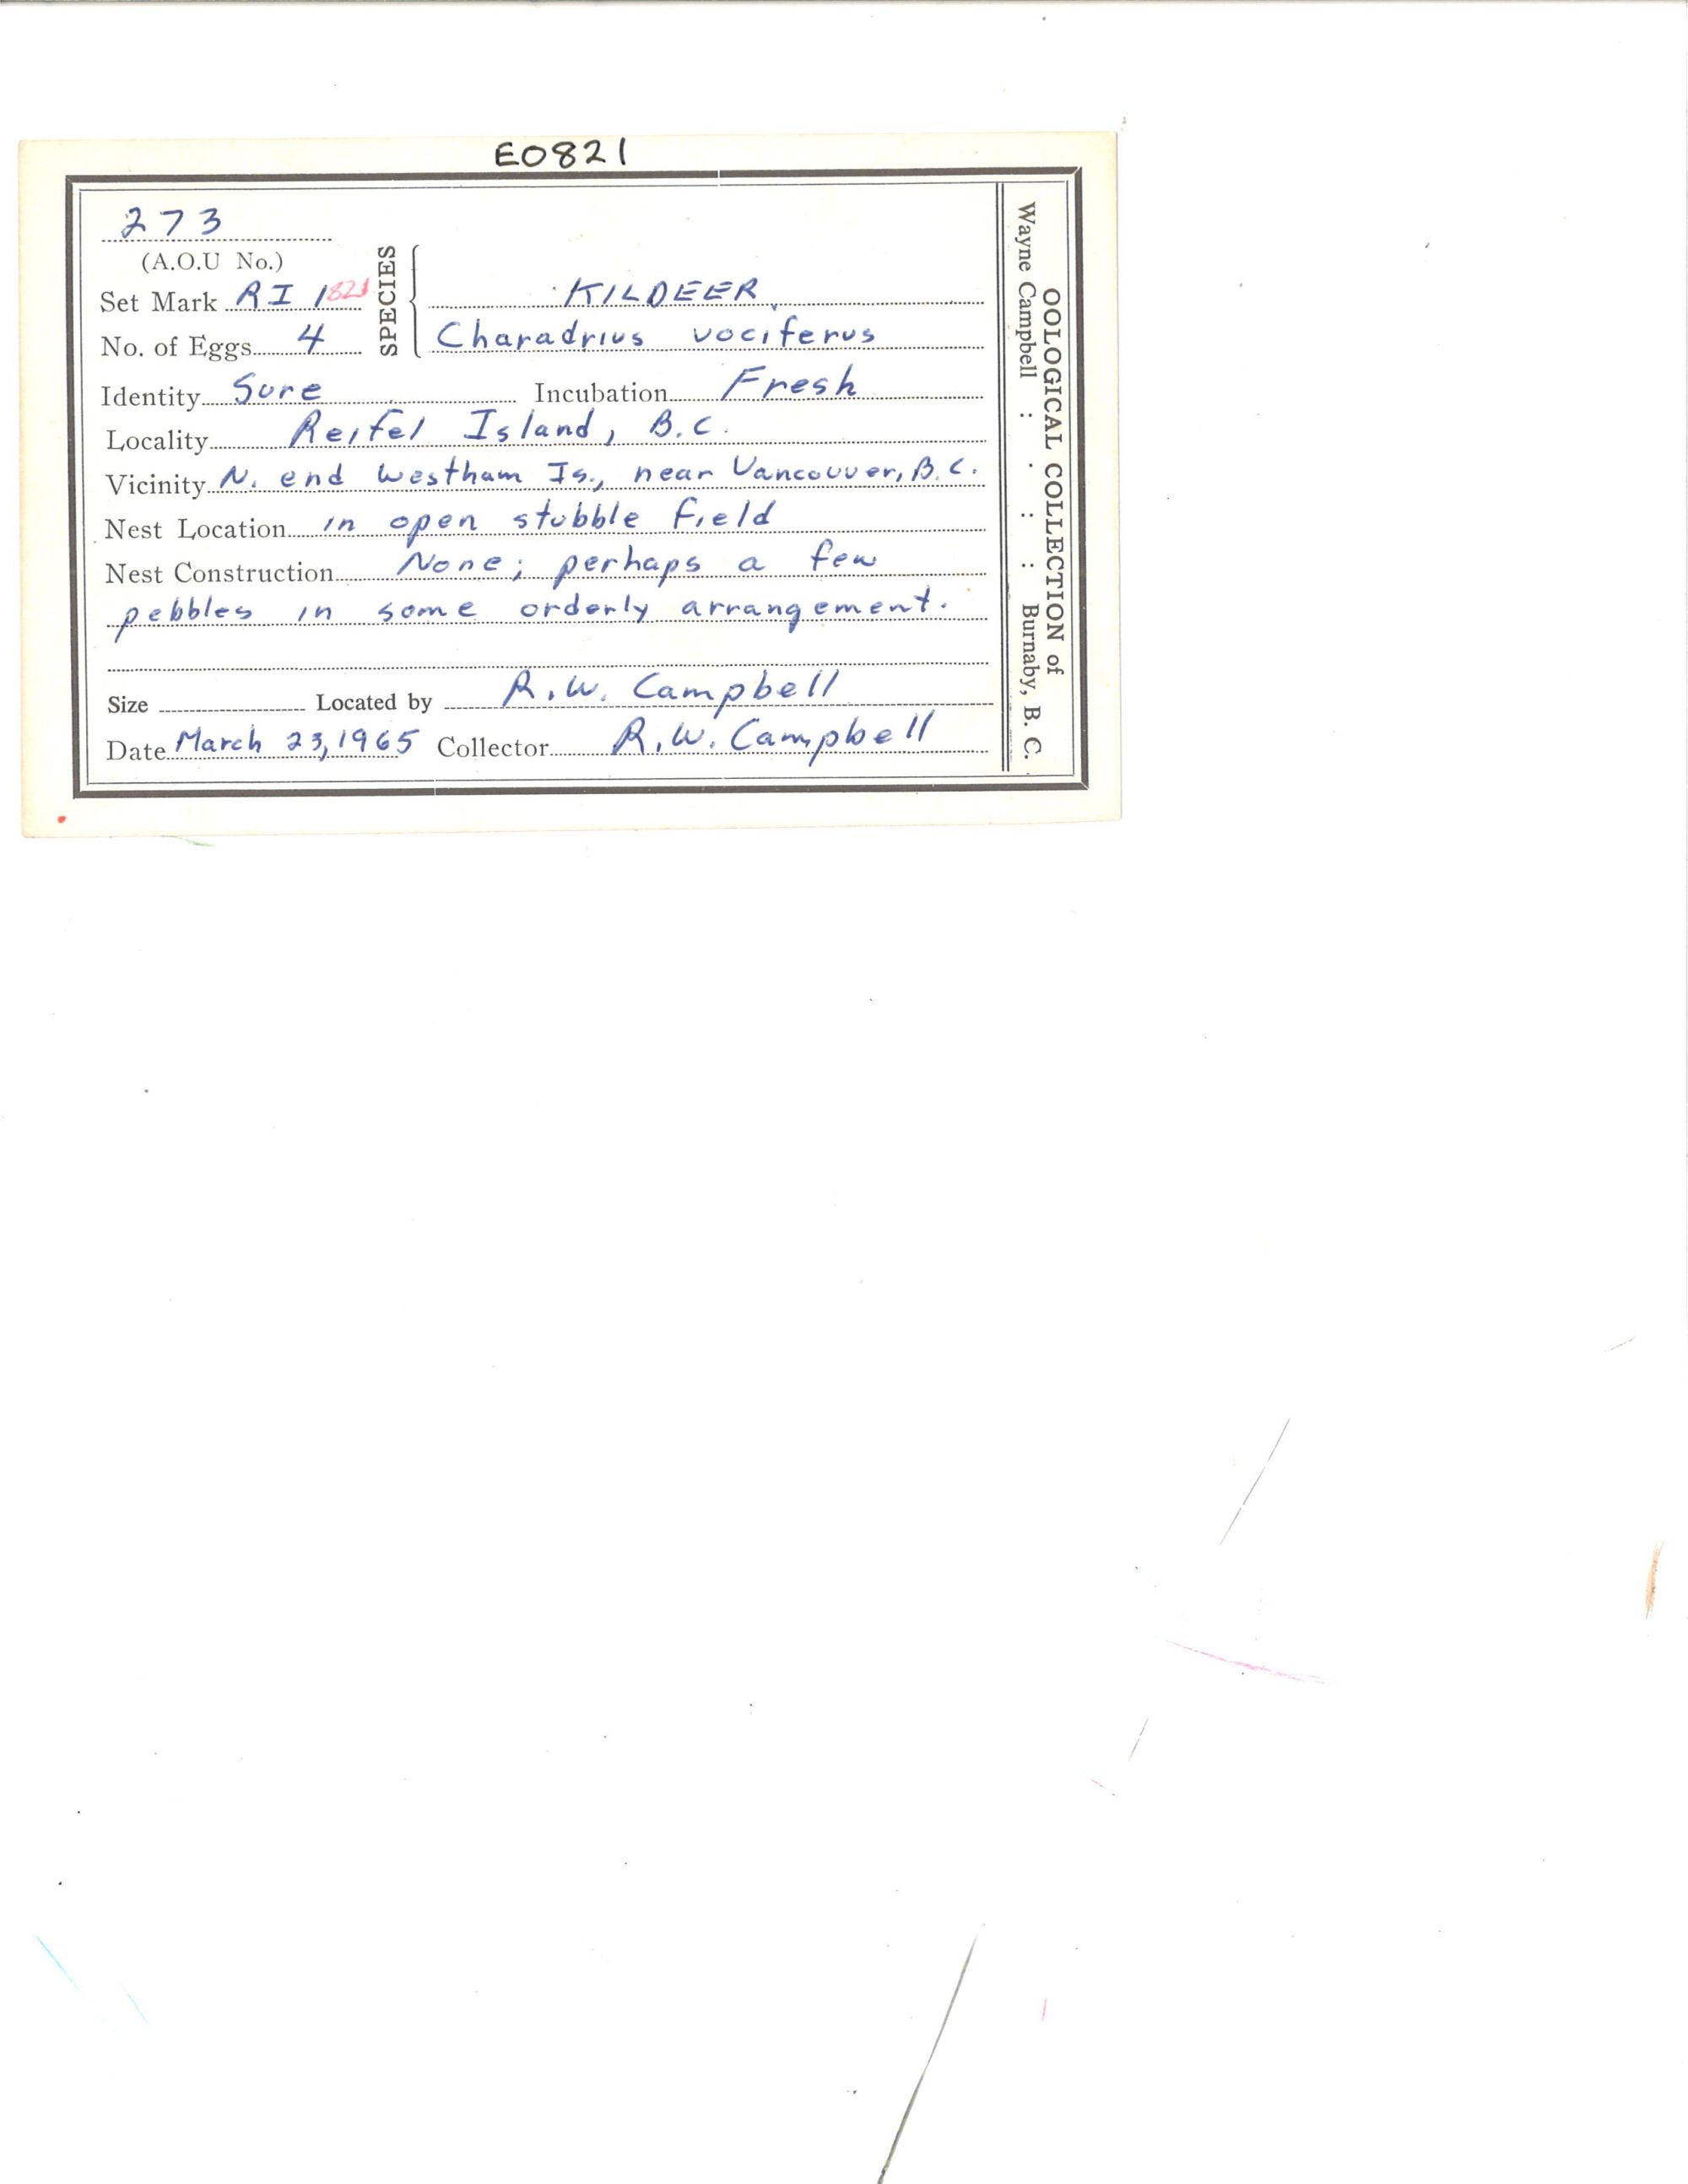 E0821
273
(A.O.U No.)
Set Mark RI 1 821
No. of Eggs 4
SPECIES
KILDEER
Charadrius vociferus
Identity Sure Incubation Fresh
Locality Reifel Island, B.C.
Vicinity N. end Westham Is., near Vancouver, B.C.
Nest Location in open stubble field
Nest Construction None; perhaps a few
pebbles in some orderly arrangement.
Size Located by R.W. Campbell
Date March 23, 1965 Collector R.W. Campbell
OOLOGICAL COLLECTION of
Wayne Campbell : : : Burnaby, B. C.